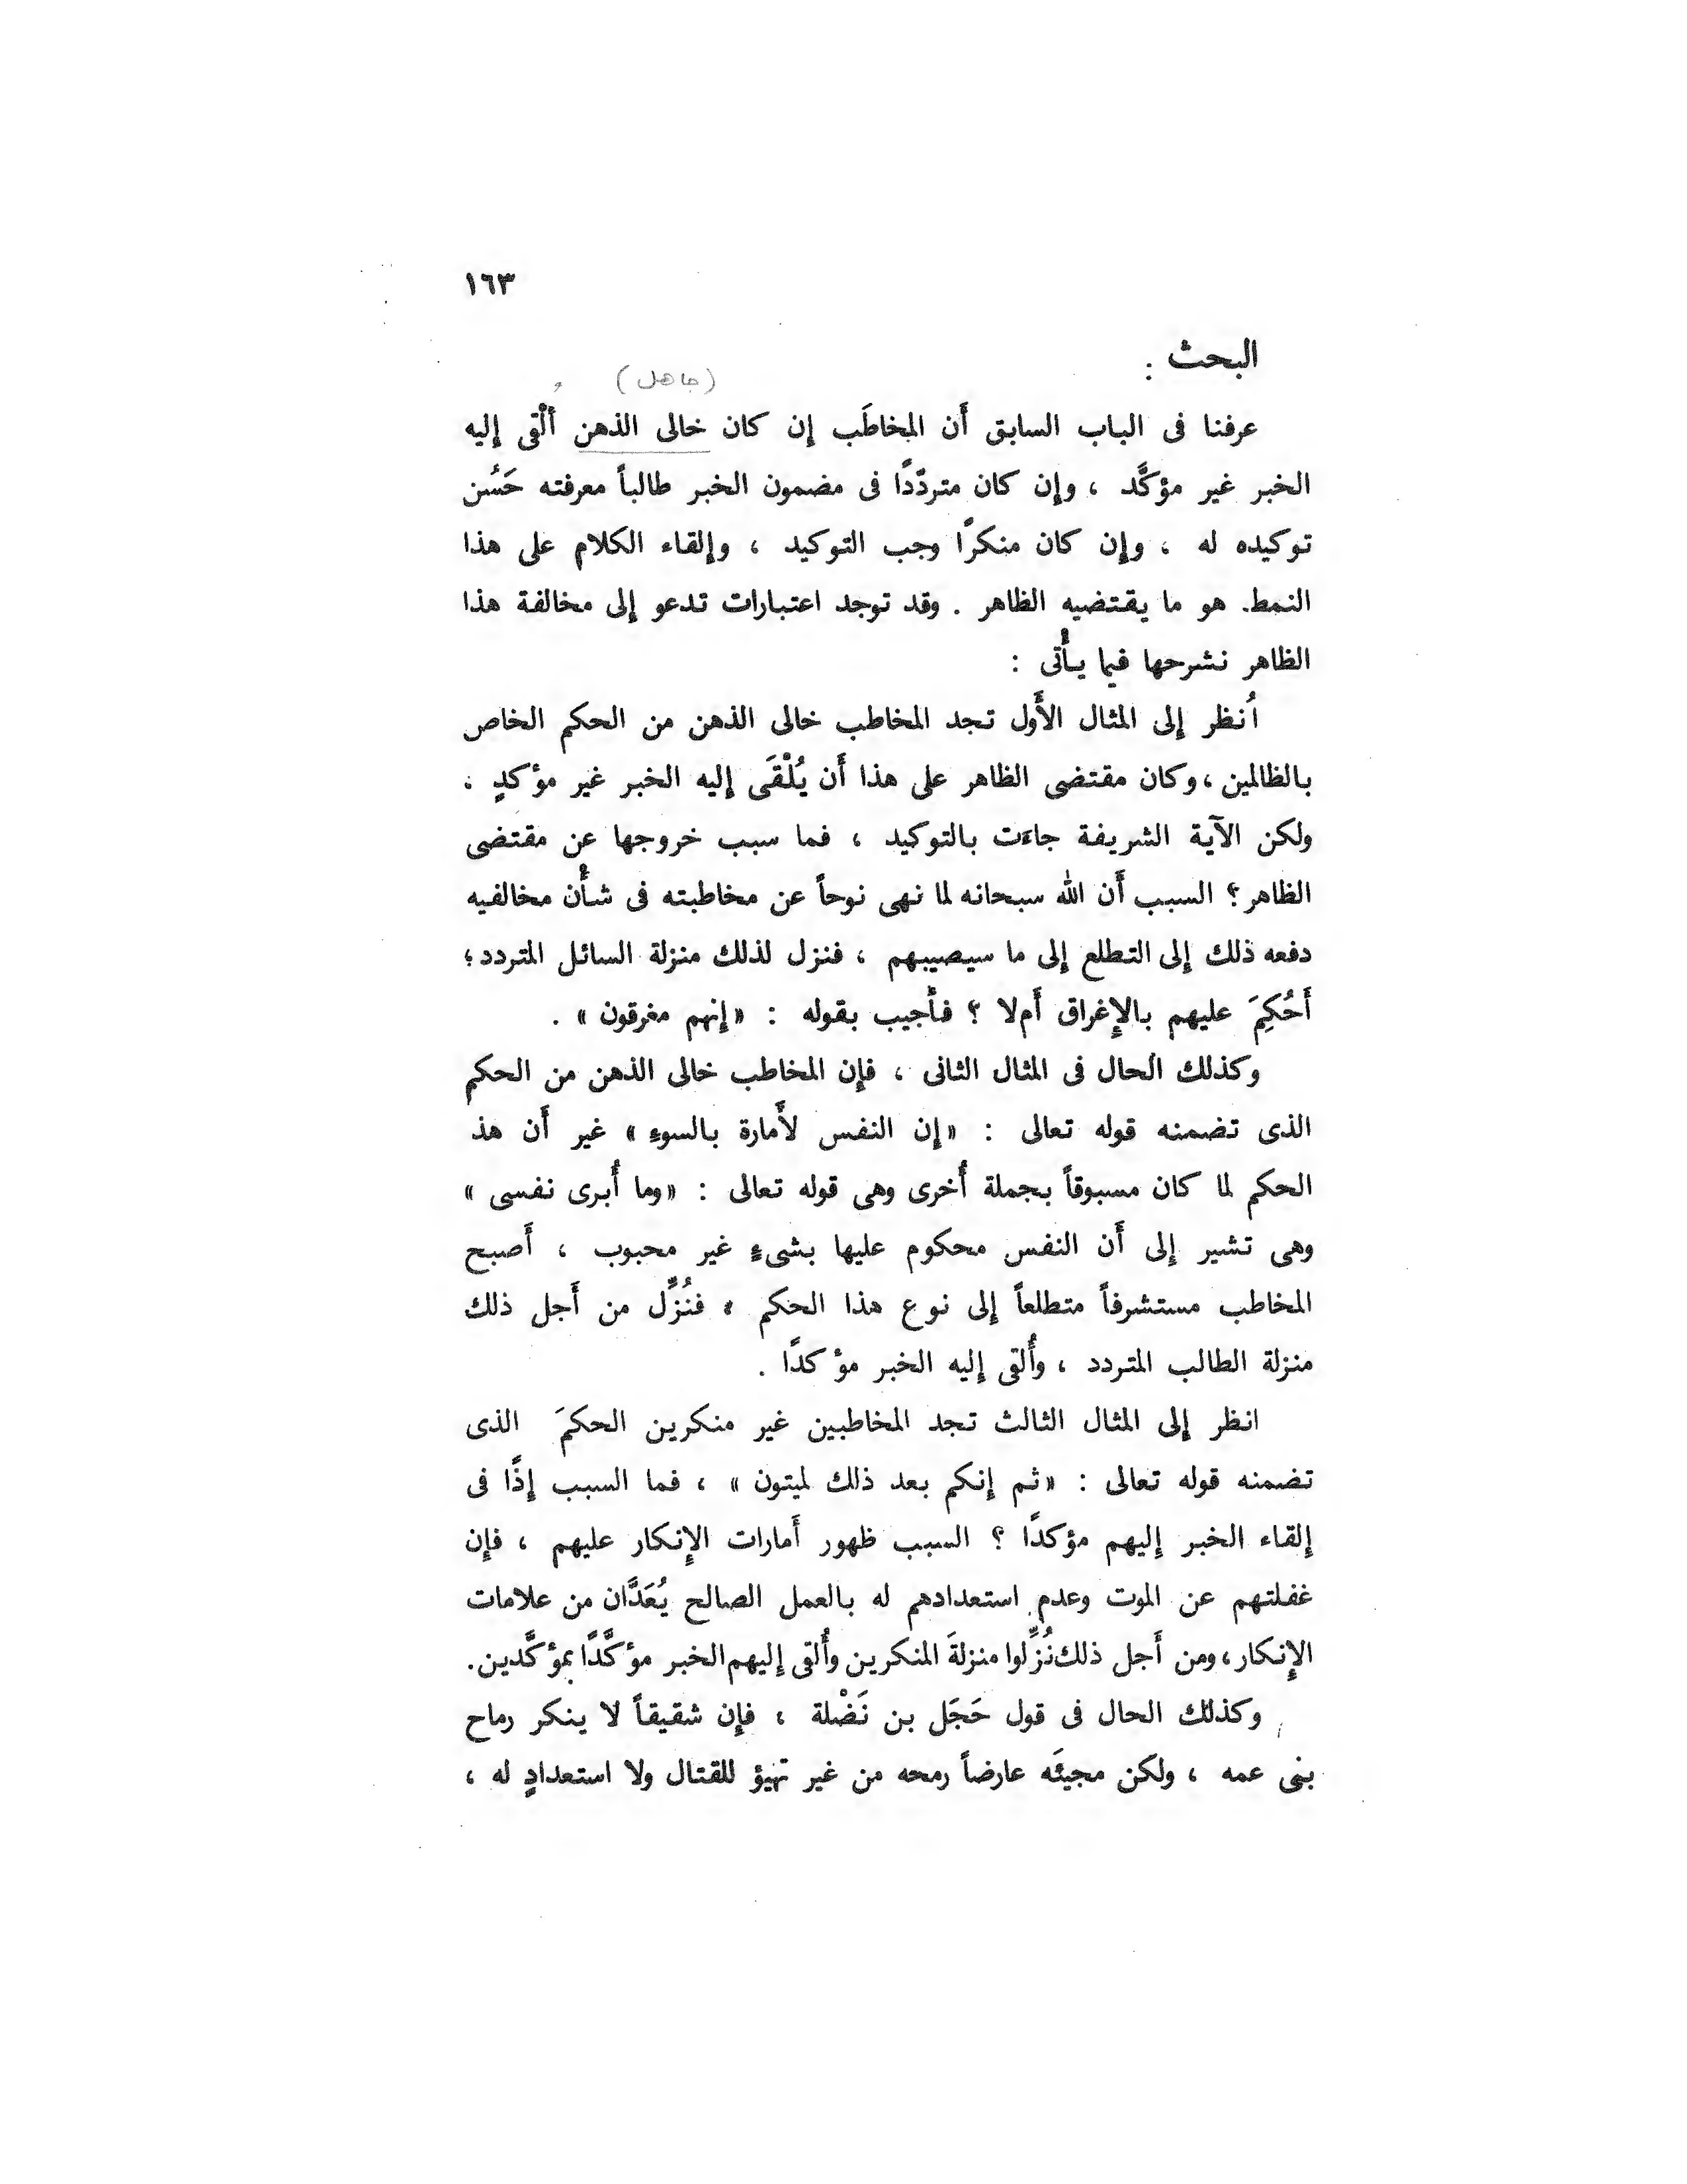 ١٦٣
البحث :
(جاهل)
عرفنا فى الباب السابق أَن المخاطَب إن كان خالى الذهن أُلْقى إليه
الخبر غير مؤكَّد ، وإن كان متردّدًا فى مضمون الخبر طالباً معرفته حَسُن
توكيده له ، وإن كان منكرًا وجب التوكيد ، وإلقاء الكلام على هذا
النمط. هو ما يقتضيه الظاهر . وقد توجد اعتبارات تدعو إلى مخالفة هذا
الظاهر نشرحها فيما يأْتى :
اُنظر إلى المثال الأَول تجد المخاطب خالى الذهن من الحكم الخاص
بالظالمين ، وكان مقتضى الظاهر على هذا أَن يُلْقَى إليه الخبر غير مؤكدٍ ،
ولكن الآية الشريفة جاءَت بالتوكيد ، فما سبب خروجها عن مقتضى
الظاهر ؟ السبب أَن الله سبحانه لما نهى نوحاً عن مخاطبته فى شأْن مخالفيه
دفعه ذلك إلى التطلع إلى ما سيصيبهم ، فنزل لذلك منزلة السائل المتردد ؛
أَحُكِمَ عليهم بالإغراق أَم لا ؟ فأُجيب بقوله : «إنهم مغرقون» .
وكذلك الحال فى المثال الثانى ، فإن المخاطب خالى الذهن من الحكم
الذى تضمنه قوله تعالى : «إن النفس لأَمارة بالسوءِ» غير أَن هذ
الحكم لما كان مسبوقاً بجملة أُخرى وهى قوله تعالى : «وما أُبرى نفسى»
وهى تشير إلى أَن النفس محكوم عليها بشىءٍ غير محبوب ، أَصبح
المخاطب مستشرفاً متطلعاً إلى نوع هذا الحكم ، فنُزِّل من أَجل ذلك
منزلة الطالب المتردد ، وأُلقى إليه الخبر مؤكدًا .
انظر إلى المثال الثالث تجد المخاطبين غير منكرين الحكمَ الذى
تضمنه قوله تعالى : «ثم إنكم بعد ذلك لميتون» ، فما السبب إذًا فى
إلقاء الخبر إليهم مؤكدًا ؟ السبب ظهور أَمارات الإنكار عليهم ، فإن
غفلتهم عن الموت وعدم استعدادهم له بالعمل الصالح يُعَدَّان من علامات
الإنكار ، ومن أَجل ذلك نُزِّلوا منزلةَ المنكرين وأُلقى إليهم الخبر مؤكَّدًا بمؤكَّدين.
وكذلك الحال فى قول حَجَل بن نَضْلة ، فإن شقيقاً لا ينكر رماح
بنى عمه ، ولكن مجيئَه عارضاً رمحه من غير تهيؤ للقتال ولا استعدادٍ له ،